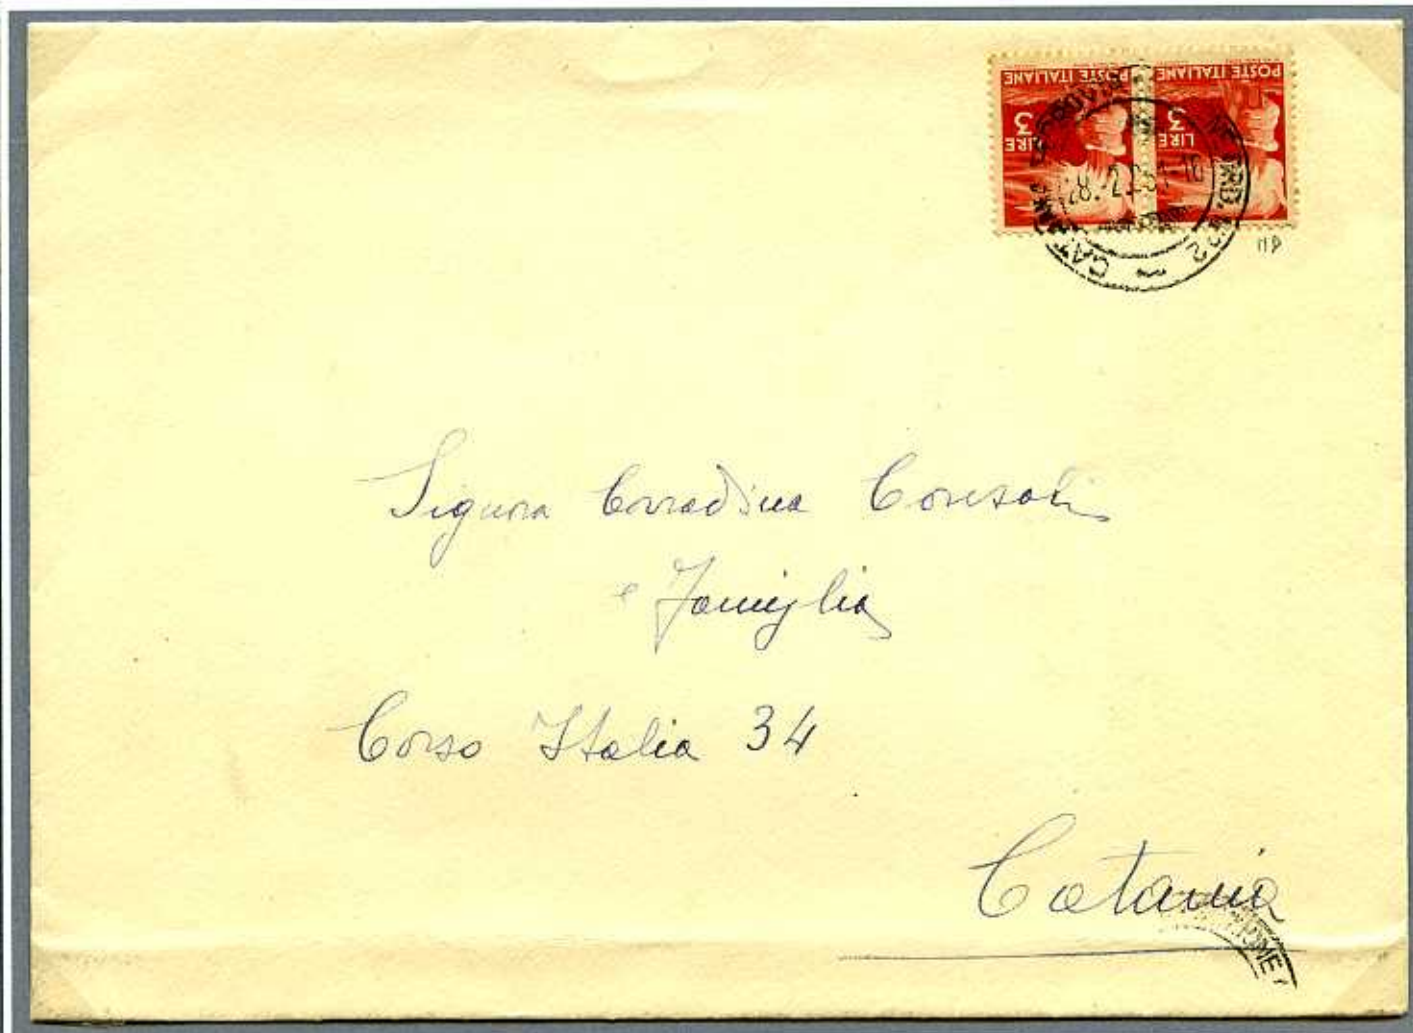 POSTE ITALIANE POSTE ITALIANE
LIRE 3 LIRE 3
Signora Corradina Consoli
e Famiglia
Corso Italia 34
Catania